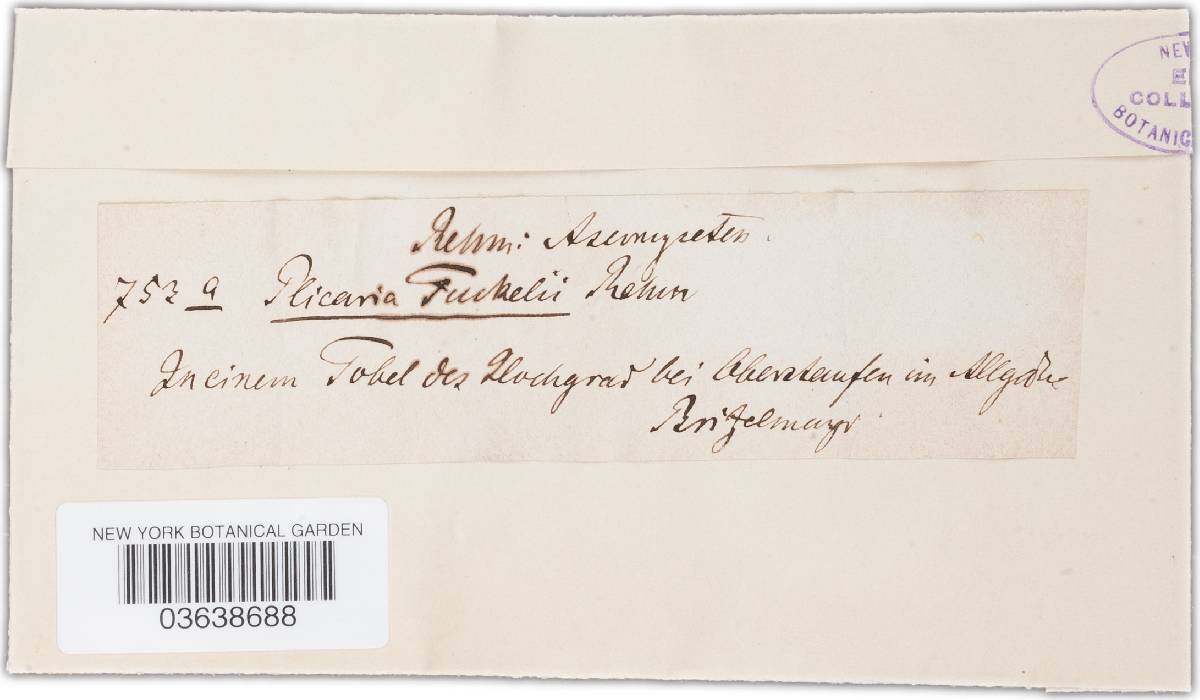 NEW
E
COLL
BOTANIC
Rehm: Ascomyceten.
753 a Plicaria Fuckelii Rehm
In einem Tobel des Hochgrad bei Oberstaufen im Allgäu
Britzelmayr
NEW YORK BOTANICAL GARDEN
03638688